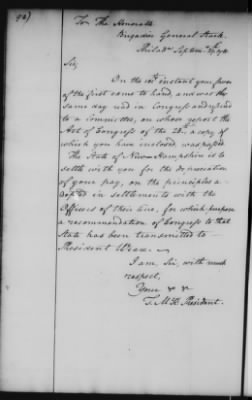 To The Honorable
Brigadier General Stark.
Sir,
On the instant your favor
of the first came to hand, and was the
same day read in Congress and referred
to a Committee, on whose report the
Act of Congress of the 28th, a copy of
which you have inclosed, was passed.
The State of New Hampshire is to
settle with you for the depreciation
of your pay, on the principles a-
dopted in settlements with the
Officers of their line, for which purpose
a recommendation of Congress to that
State has been transmitted to
President Weare.
I am, Sir, with much
respect,
Your
T. M:K. President.